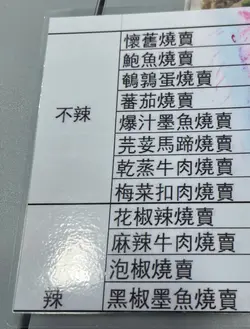 不辣
懷舊燒賣
鮑魚燒賣
鵪鶉蛋燒賣
蕃茄燒賣
爆汁墨魚燒賣
芫荽馬蹄燒賣
乾蒸牛肉燒賣
梅菜扣肉燒賣
辣
花椒辣燒賣
麻辣牛肉燒賣
泡椒燒賣
黑椒墨魚燒賣